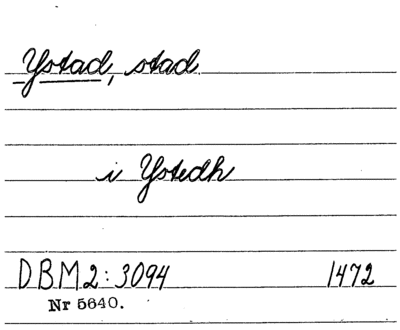 Ystad, stad
i Ystedh
DBM2:3094 1472
Nr 5640.